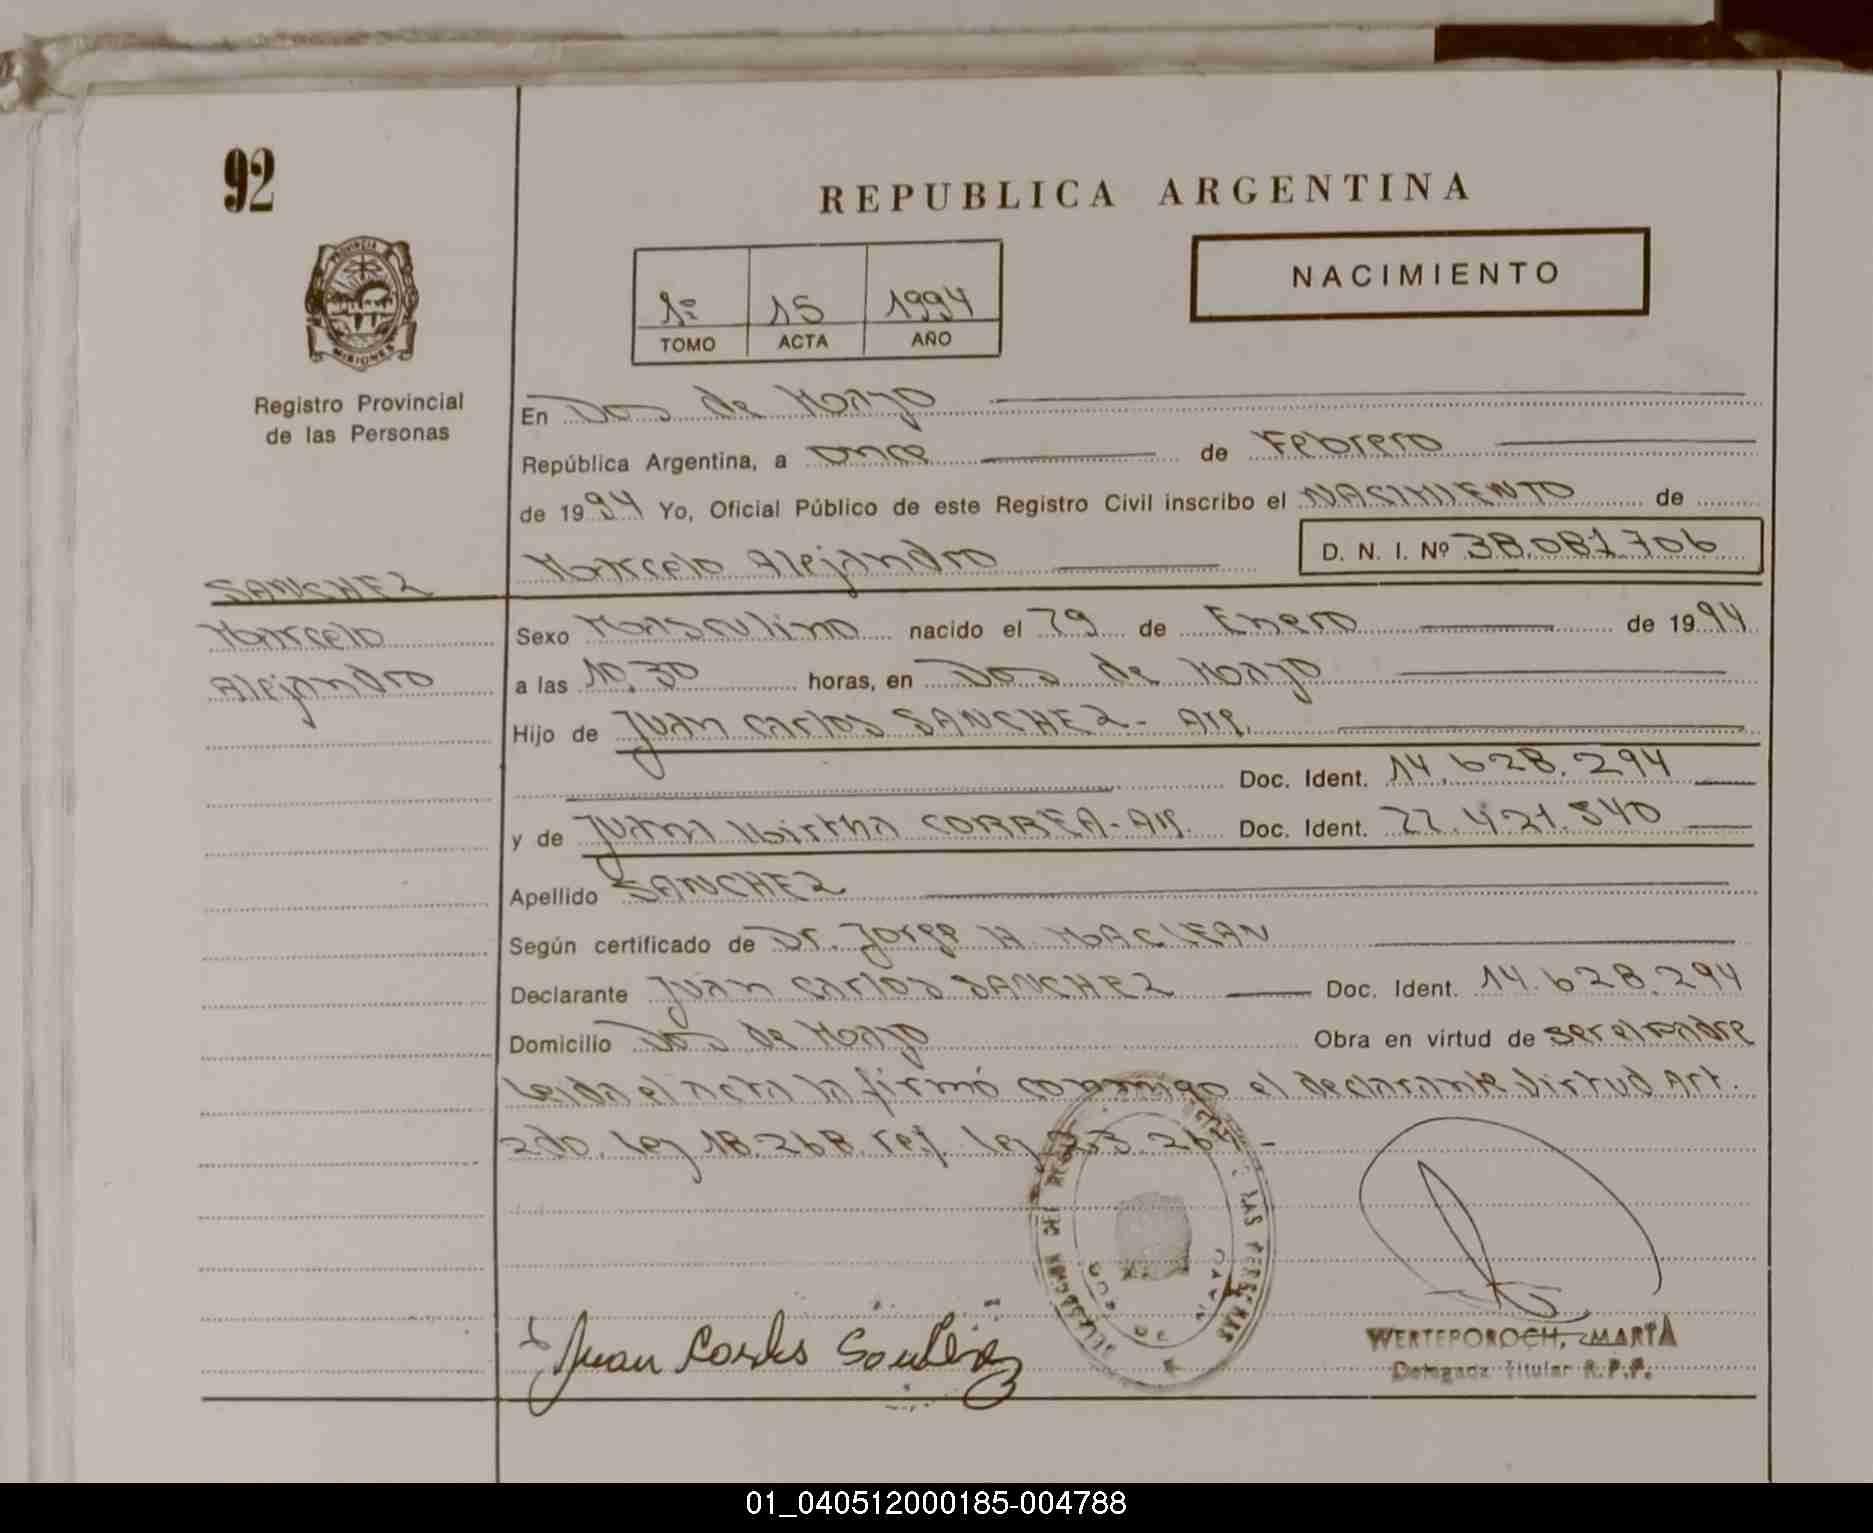 92
REPUBLICA ARGENTINA
PROVINCIA
MISIONES
1º 15 1994
TOMO ACTA AÑO
NACIMIENTO
Registro Provincial
de las Personas
En Dos de Mayo
República Argentina, a once de Febrero
de 1994 Yo, Oficial Público de este Registro Civil inscribo el NACIMIENTO de
Marcelo Alejandro D. N. I. Nº 38.081.706
SANCHEZ
Marcelo
Alejandro
Sexo Masculino nacido el 29 de Enero de 1994
a las 10.30 horas, en Dos de Mayo
Hijo de Juan Carlos SANCHEZ - Arg.
Doc. Ident. 14.628.294
y de Juana Mirtha CORREA - Arg. Doc. Ident. 22.421.540
Apellido SANCHEZ
Según certificado de Dr. Jorge H MACLEAN
Declarante Juan Carlos SANCHEZ Doc. Ident. 14.628.294
Domicilio Dos de Mayo Obra en virtud de ser el padre
Leida el acta la firmó conmigo el declarante Virtud Art.
2do. Ley 18.268. ref. ley 23.264 -
Juan Carlos Sanchez
DELEGACION DEL REGISTRO DE LAS PERSONAS
DOS DE MAYO
WERTEPOROCH, MARTA
Delegada Titular R.P.P.
01_040512000185-004788